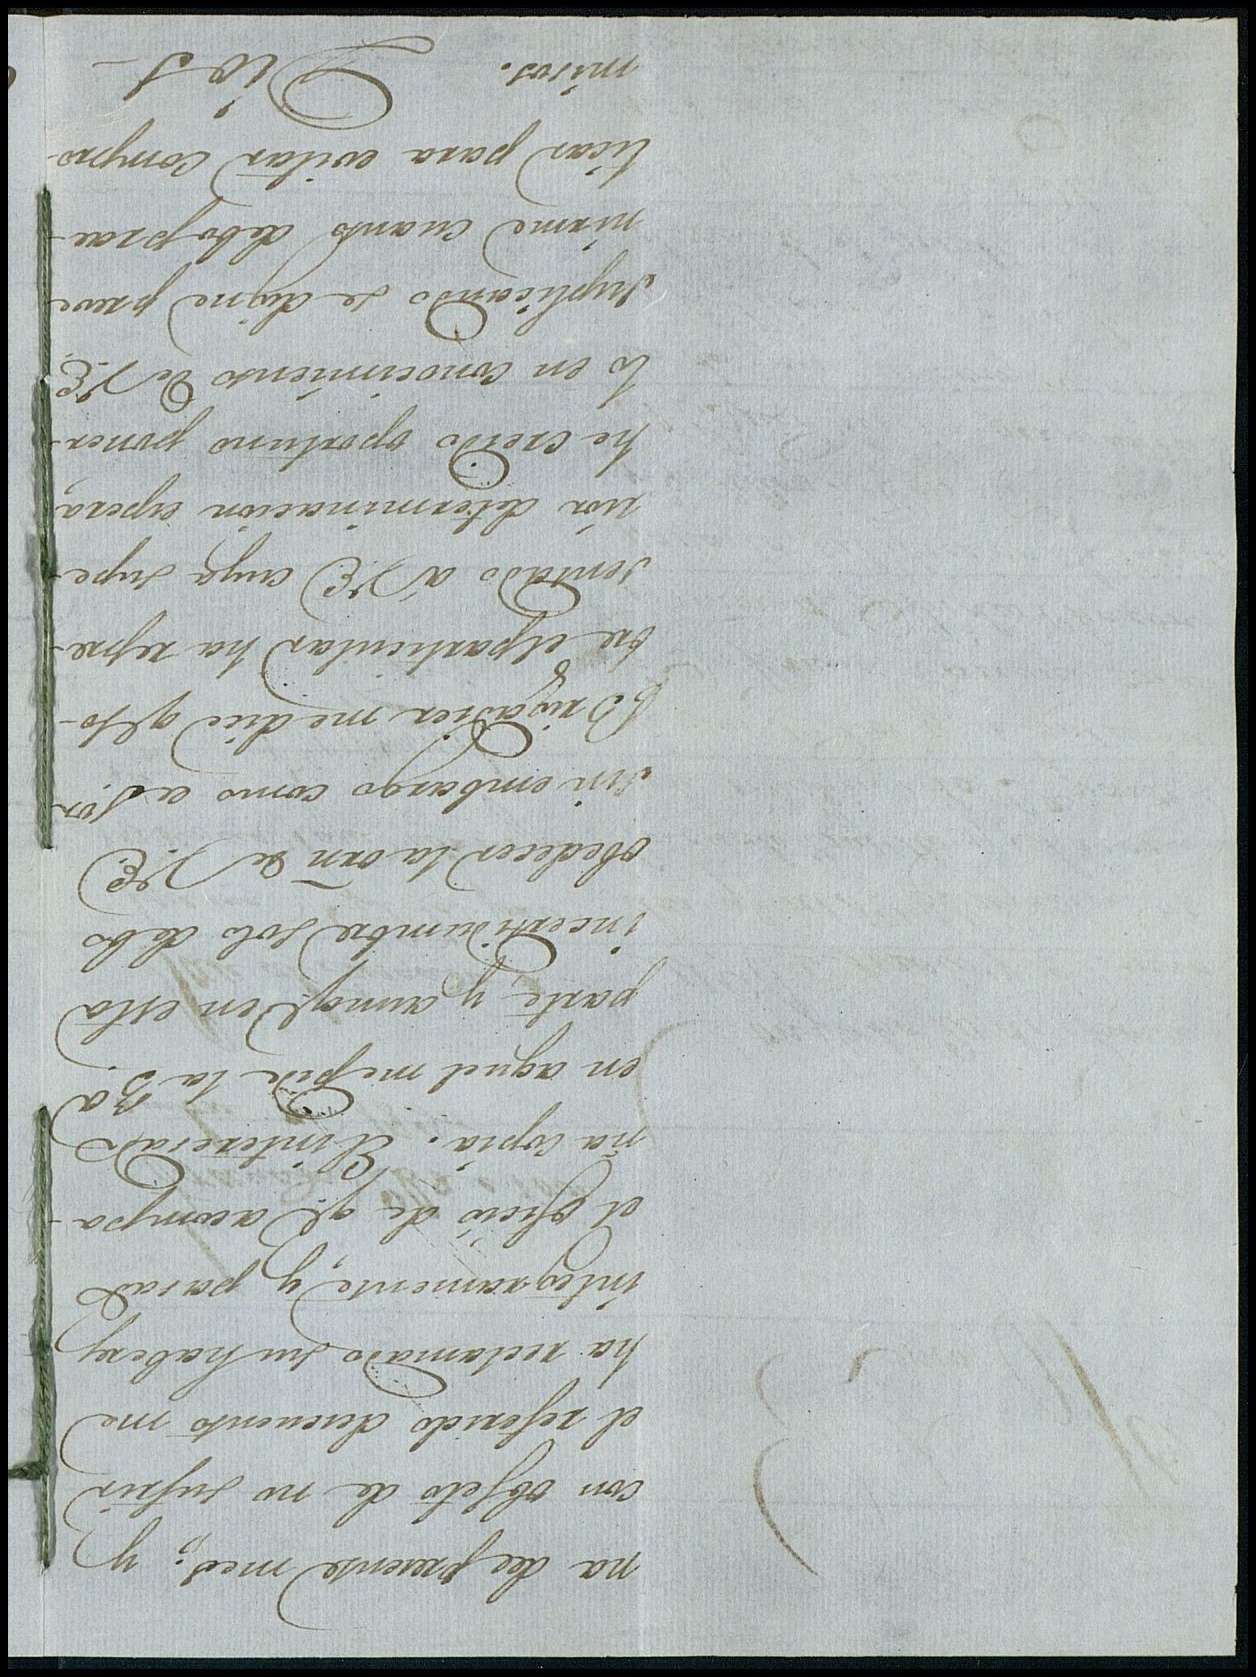 na del presente mes; y
con objeto de no sufrir
el referido descuento me
ha reclamado su haber
integramente, y pasad
el oficio de qe. acompa-
ña copia. El interesado
en aquel me pide la 3.a
parte y aunqe. en esta
incertidumbre solo debo
obedecer la orñ de V.E.
sin embargo como el Sor.
Brigadier me dice qe. so-
bre el particular ha repre-
sentado á V.E. cuya supe-
rior determinacion espera,
he creido oportuno poner-
lo en conocimiento de V.E.
suplicando se digne preve-
nirme cuanto debo prac-
ticar para evitar compro-
misos.
Dios